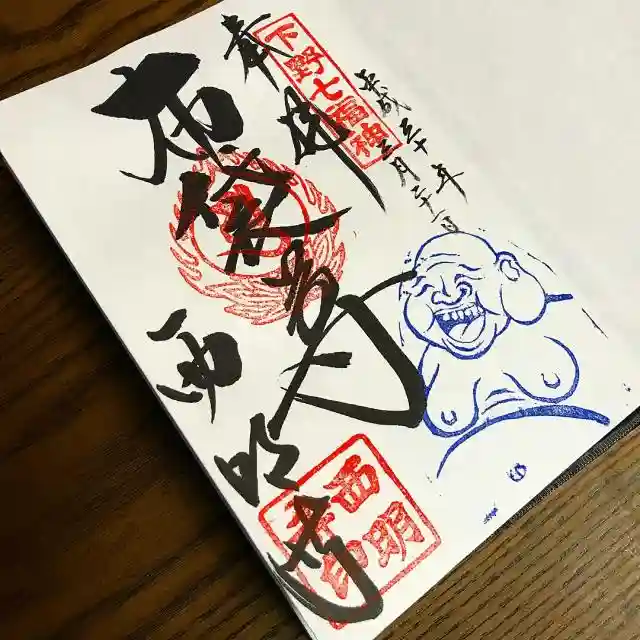 平成三十年
三月二十一日
下野七福神
奉拝
布袋尊
西明寺
西明
寺印